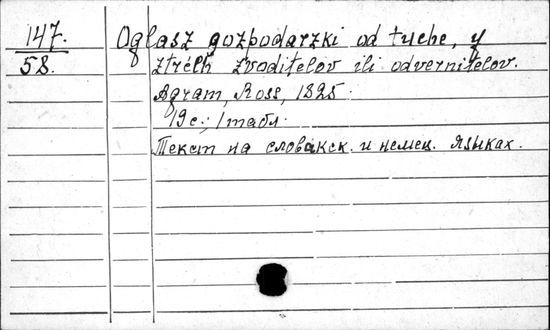 147.
58.
Oglasz gozpodarzki od tuche, y
ztrélh zvoditelov ili odvernitelov.
Agram, Ross, 1825.
19 с.; 1 табл.
Текст на словакск. и немец. языках.